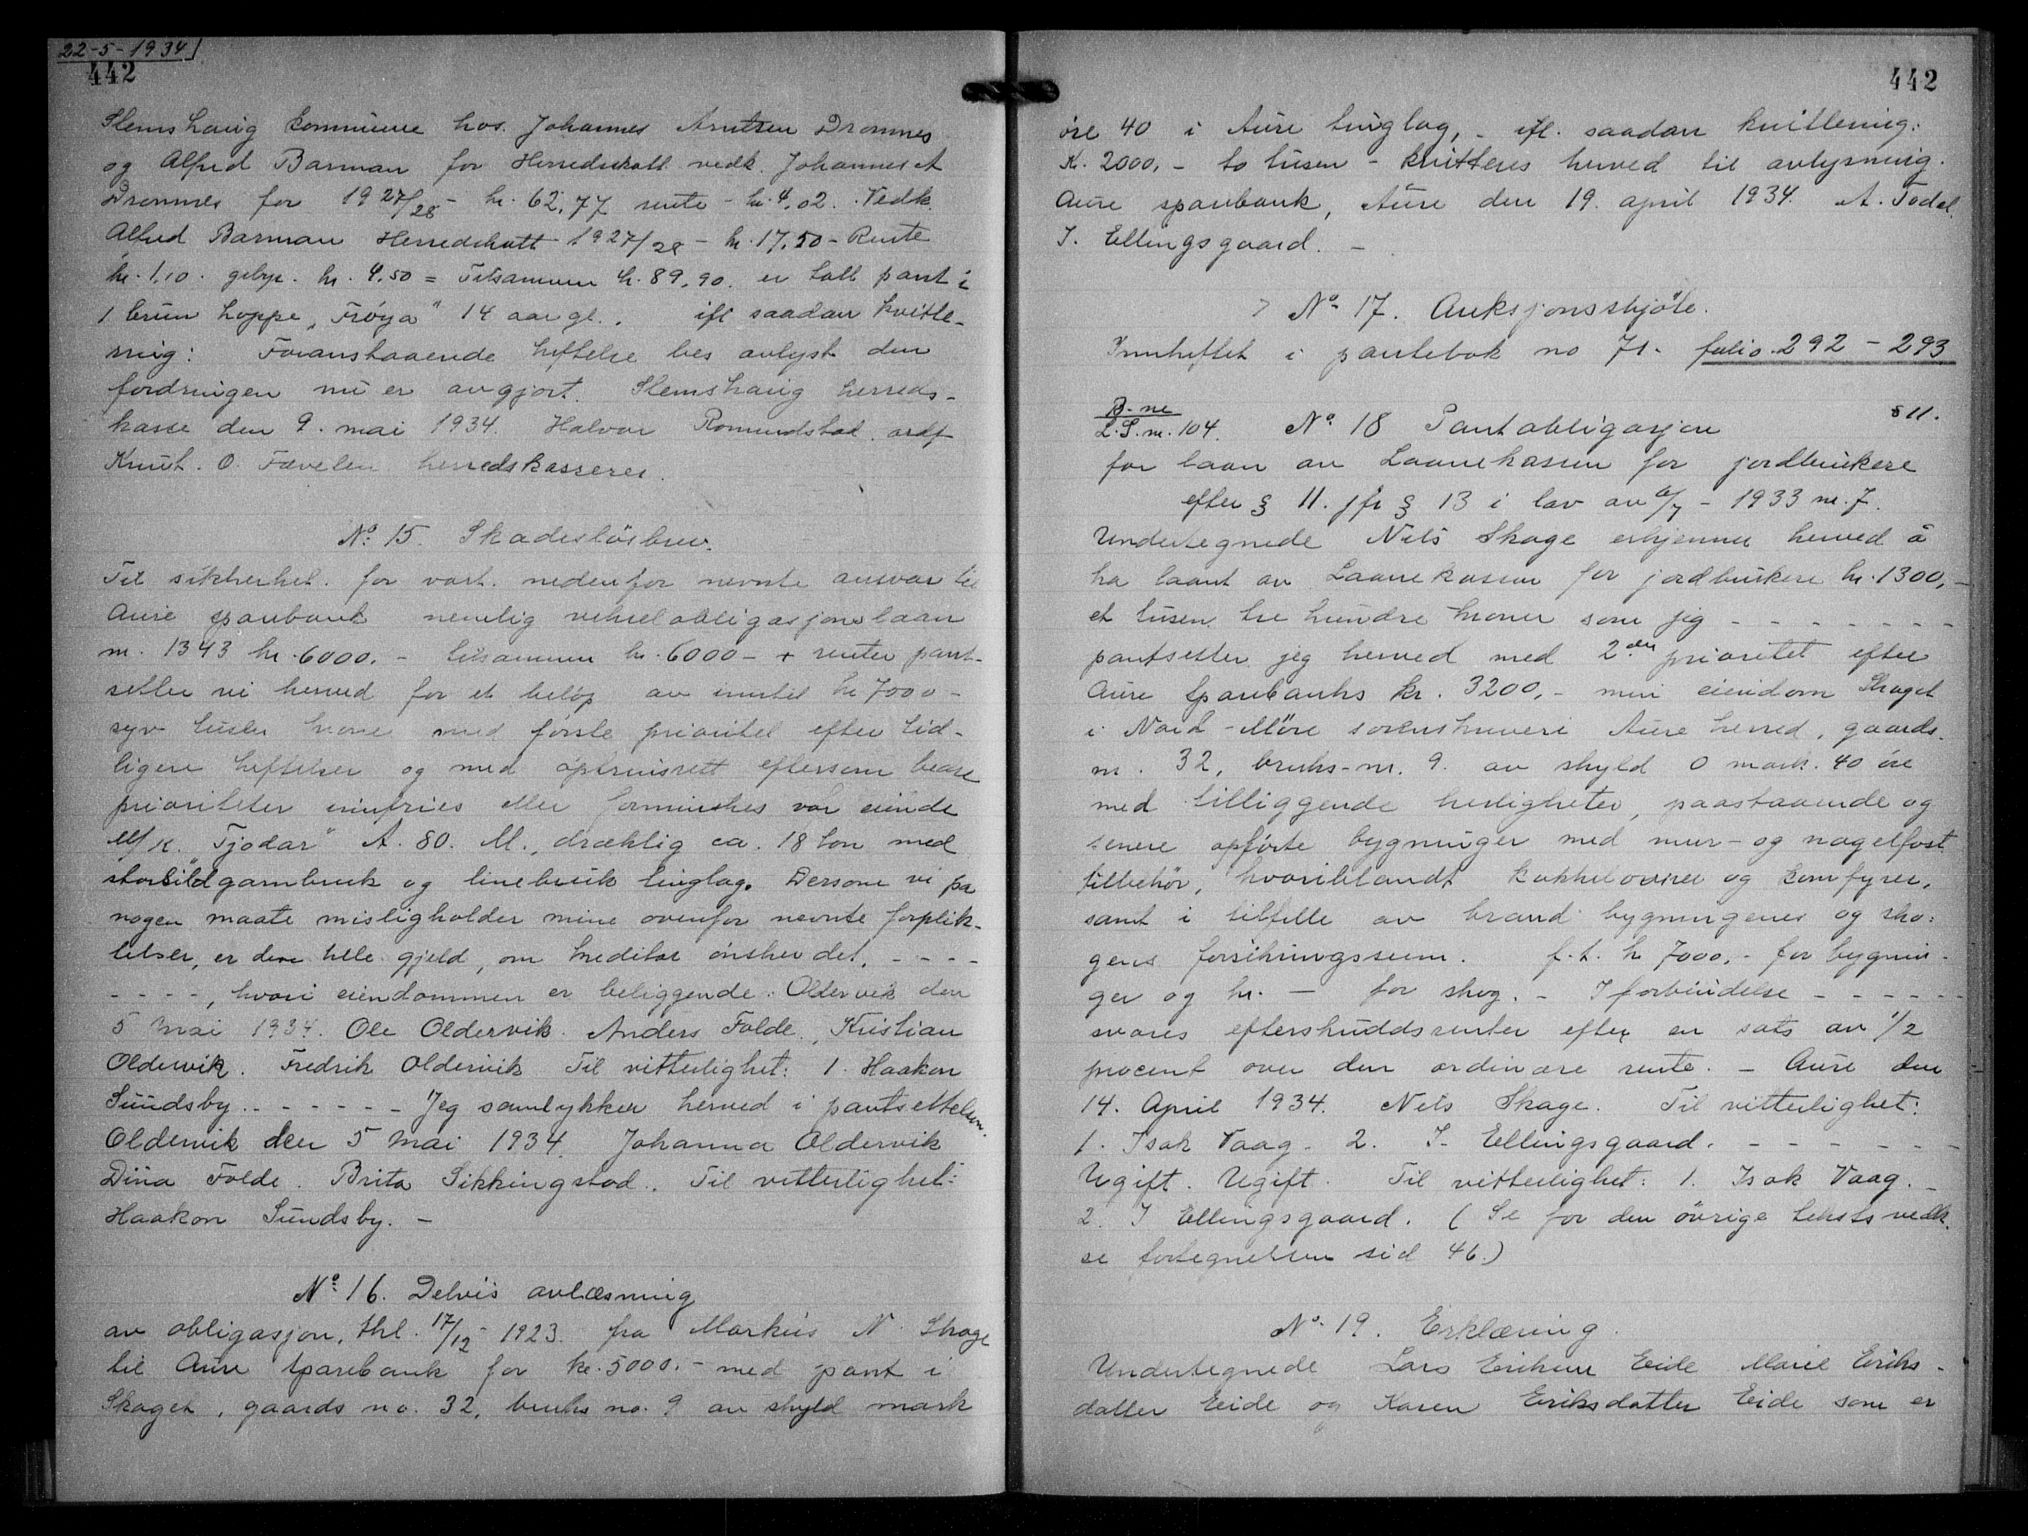 22-5-1934
442
Slemshaug kommune hos. Johannes Arntsen Dromnes
og Alfred Barman for Herredsskatt vedk. Johannes A
Dromnes for 1927/28 - kr. 62,77 rente - kr. 4,02. Vedk.
Alfred Barman Herredskatt 1927/28 - kr. 17,50 - Rente
kr. 1,10. gebyr. kr. 4,50 = Tilsammen kr. 89,90. er tatt pant i
1 brun hoppe „Frøya" 14 aar gl., ifl saadan kvitte-
ring: Foranstaaende heftelse bes avlyst den
fordringen nu er avgjort. Slemshaug herreds-
kasse den 9. mai 1934. Halvor Romundstad. ordf
Knut. O. Fævelen herredskasserer.
No. 15. Skadesløsbrev.
Til sikkerhet. for vort. nedenfor nevnte ansvar til
Aure sparebank nemlig vekselobligasjonslaan
nr. 1343 kr. 6000. - tilsammen kr. 6000 - + renter pant-
setter vi herved for et beløp av inntil kr 7000 -
syv tusen krone med første prioritet efter tid-
ligere heftelser og med optrinsrett eftersom bedre
prioriteter innfries eller forminskes vor eiende
M/K. "Tjodar" A. 80. M., dræktig ca. 18 ton med
storsildgarnbruk og linebruk tinglag. Dersom vi pa
nogen maate misligholder mine ovenfor nevnte forplik-
telser, er den hele gjeld, om kreditor ønsker det, - - - -
- - - -, hvori eiendommen er beliggende. Oldervik den
5 Mai 1934. Ole Oldervik. Anders Folde., Kristian
Oldervik. Fredrik Oldervik Til vitterlighet: 1. Haakon
Sundsby. - - - - - - Jeg samtykker herved i pantsettelsen.
Oldervik den 5 Mai 1934. Johanna Oldervik
Dina Folde. Brita Sikkingstad. Til vitterlighet:
Haakon Sundsby. -
No. 16. Delvis avlæsning
av obligasjon, thl. 17/12 - 1923. fra Markus N Skage
til Aure Sparebank for kr. 5000. - med pant i
Skaget, gaards no. 32, bruks no. 9 av skyld mark
442
øre 40 i Aure tinglag, - ifl. saadan kvittering:
Kr. 2000. - to tusen - kvitteres herved til avlysning.
Aure sparebank, Aure den 19. april 1934. A. Todal.
I. Ellingsgaard. -
No. 17. Auksjonsskjøte.
Innheftet i pantebok no 71. folio 292 - 293
B-ne
L. S. nr. 104. No. 18 Pantobligasjon § 11.
for laan av Laanekassen for jordbrukere
efter § 11. jfr § 13 i lov av 6/7 - 1933 nr. 7.
Undertegnede Nils Skage erkjenner herved å
ha laant av Laanekassen for jordbrukere kr. 1300, -
et tusen tre hundre kroner som jeg - - - - - - -
pantsetter jeg herved med 2den prioritet efter
Aure Sparebanks kr. 3200, - min eiendom Skaget
i Nord-Møre sorenskriveri Aure herred, gaards.
nr. 32, bruks-nr. 9. av skyld 0 mark. 40 øre
med tilliggende herligheter, paastaaende og
senere opførte bygninger med mur- og nagelfast
tilbehør, hvoriblandt kakkelovner og komfyrer,
samt i tilfelle av brand bygningenes og sko-
gens forsikringssum. f.t. kr 7000, - for bygnin-
ger og kr. - for skog. - I forbindelse - - - - - -
svares efterskuddsrenter efter en sats av 1/2
procent over den ordinære rente. - Aure den
14. April 1934. Nils Skage. Til vitterlighet:
1. Isak Vaag. 2. I. Ellingsgaard. - - - - - - -
Ugift. Ugift. Til vitterlighet: 1. Isak Vaag. -
2. I Ellingsgaard. (Se for den øvrige teksts vedk.
se fortegnelsen sid 46.)
No. 19. Erklæring.
Undertegnede Lars Eriksen Eide Marie Eriks-
datter Eide og Karen Eriksdatter Eide som er